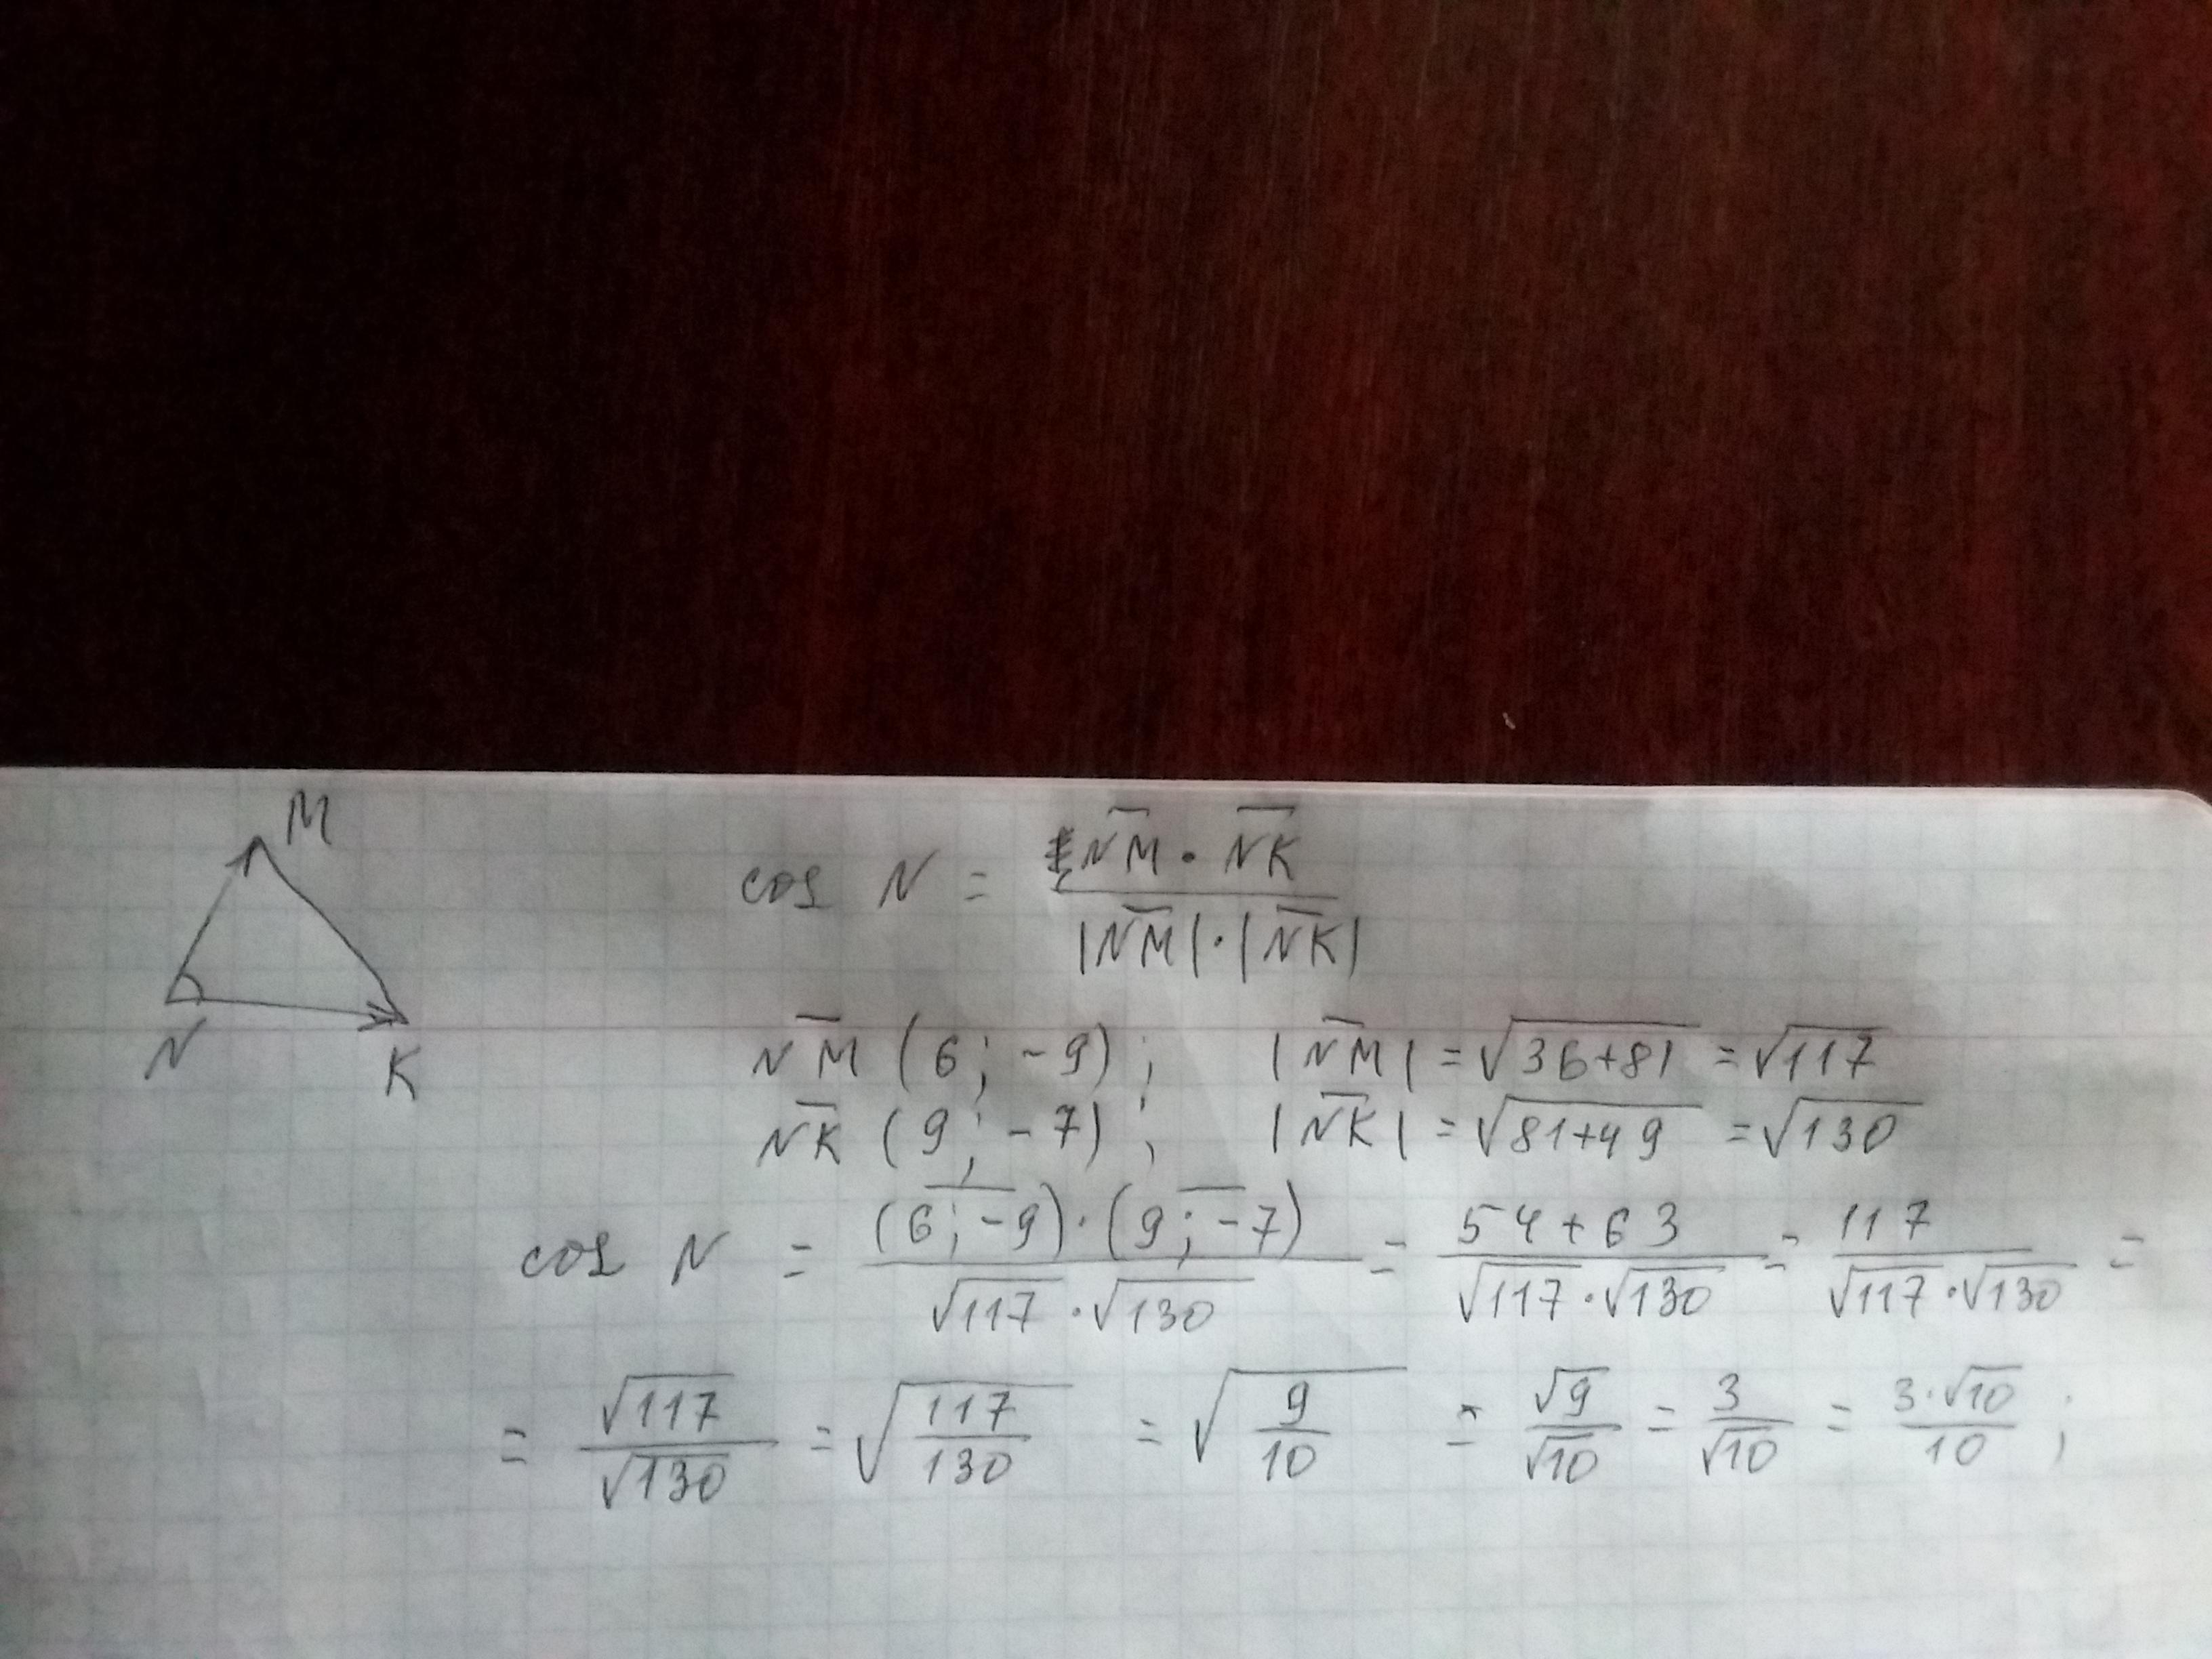 M
N
K
cos N = NM · NK / |NM| · |NK|
NM (6; -9); |NM| = √36+81 = √117
NK (9; -7); |NK| = √81+49 = √130
cos N = (6; -9) · (9; -7) / √117 · √130 = 54+63 / √117 · √130 = 117 / √117 · √130 =
= √117 / √130 = √117/130 = √9/10 = √9 / √10 = 3 / √10 = 3·√10 / 10 ;